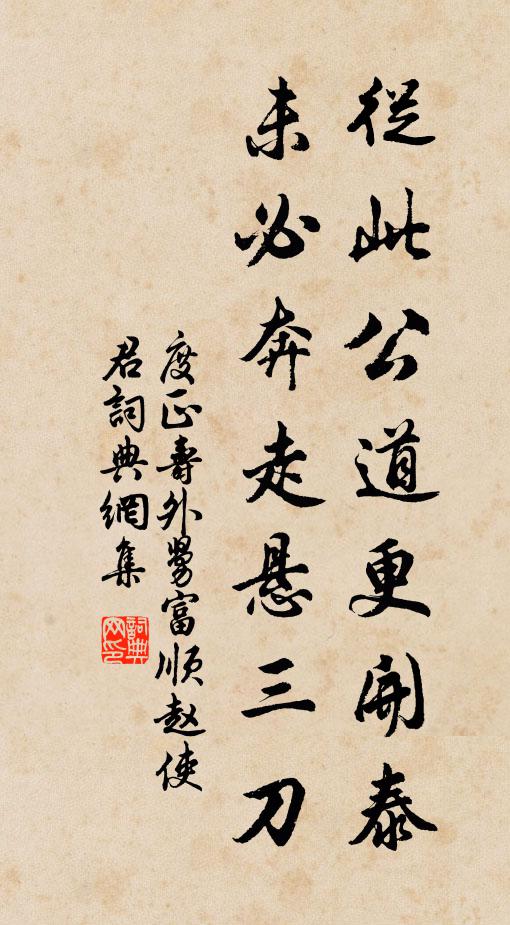 從此公道更開泰
未必奔走悬三刀
度正壽外舅富順赵使
君詞典網集
詞典
网印